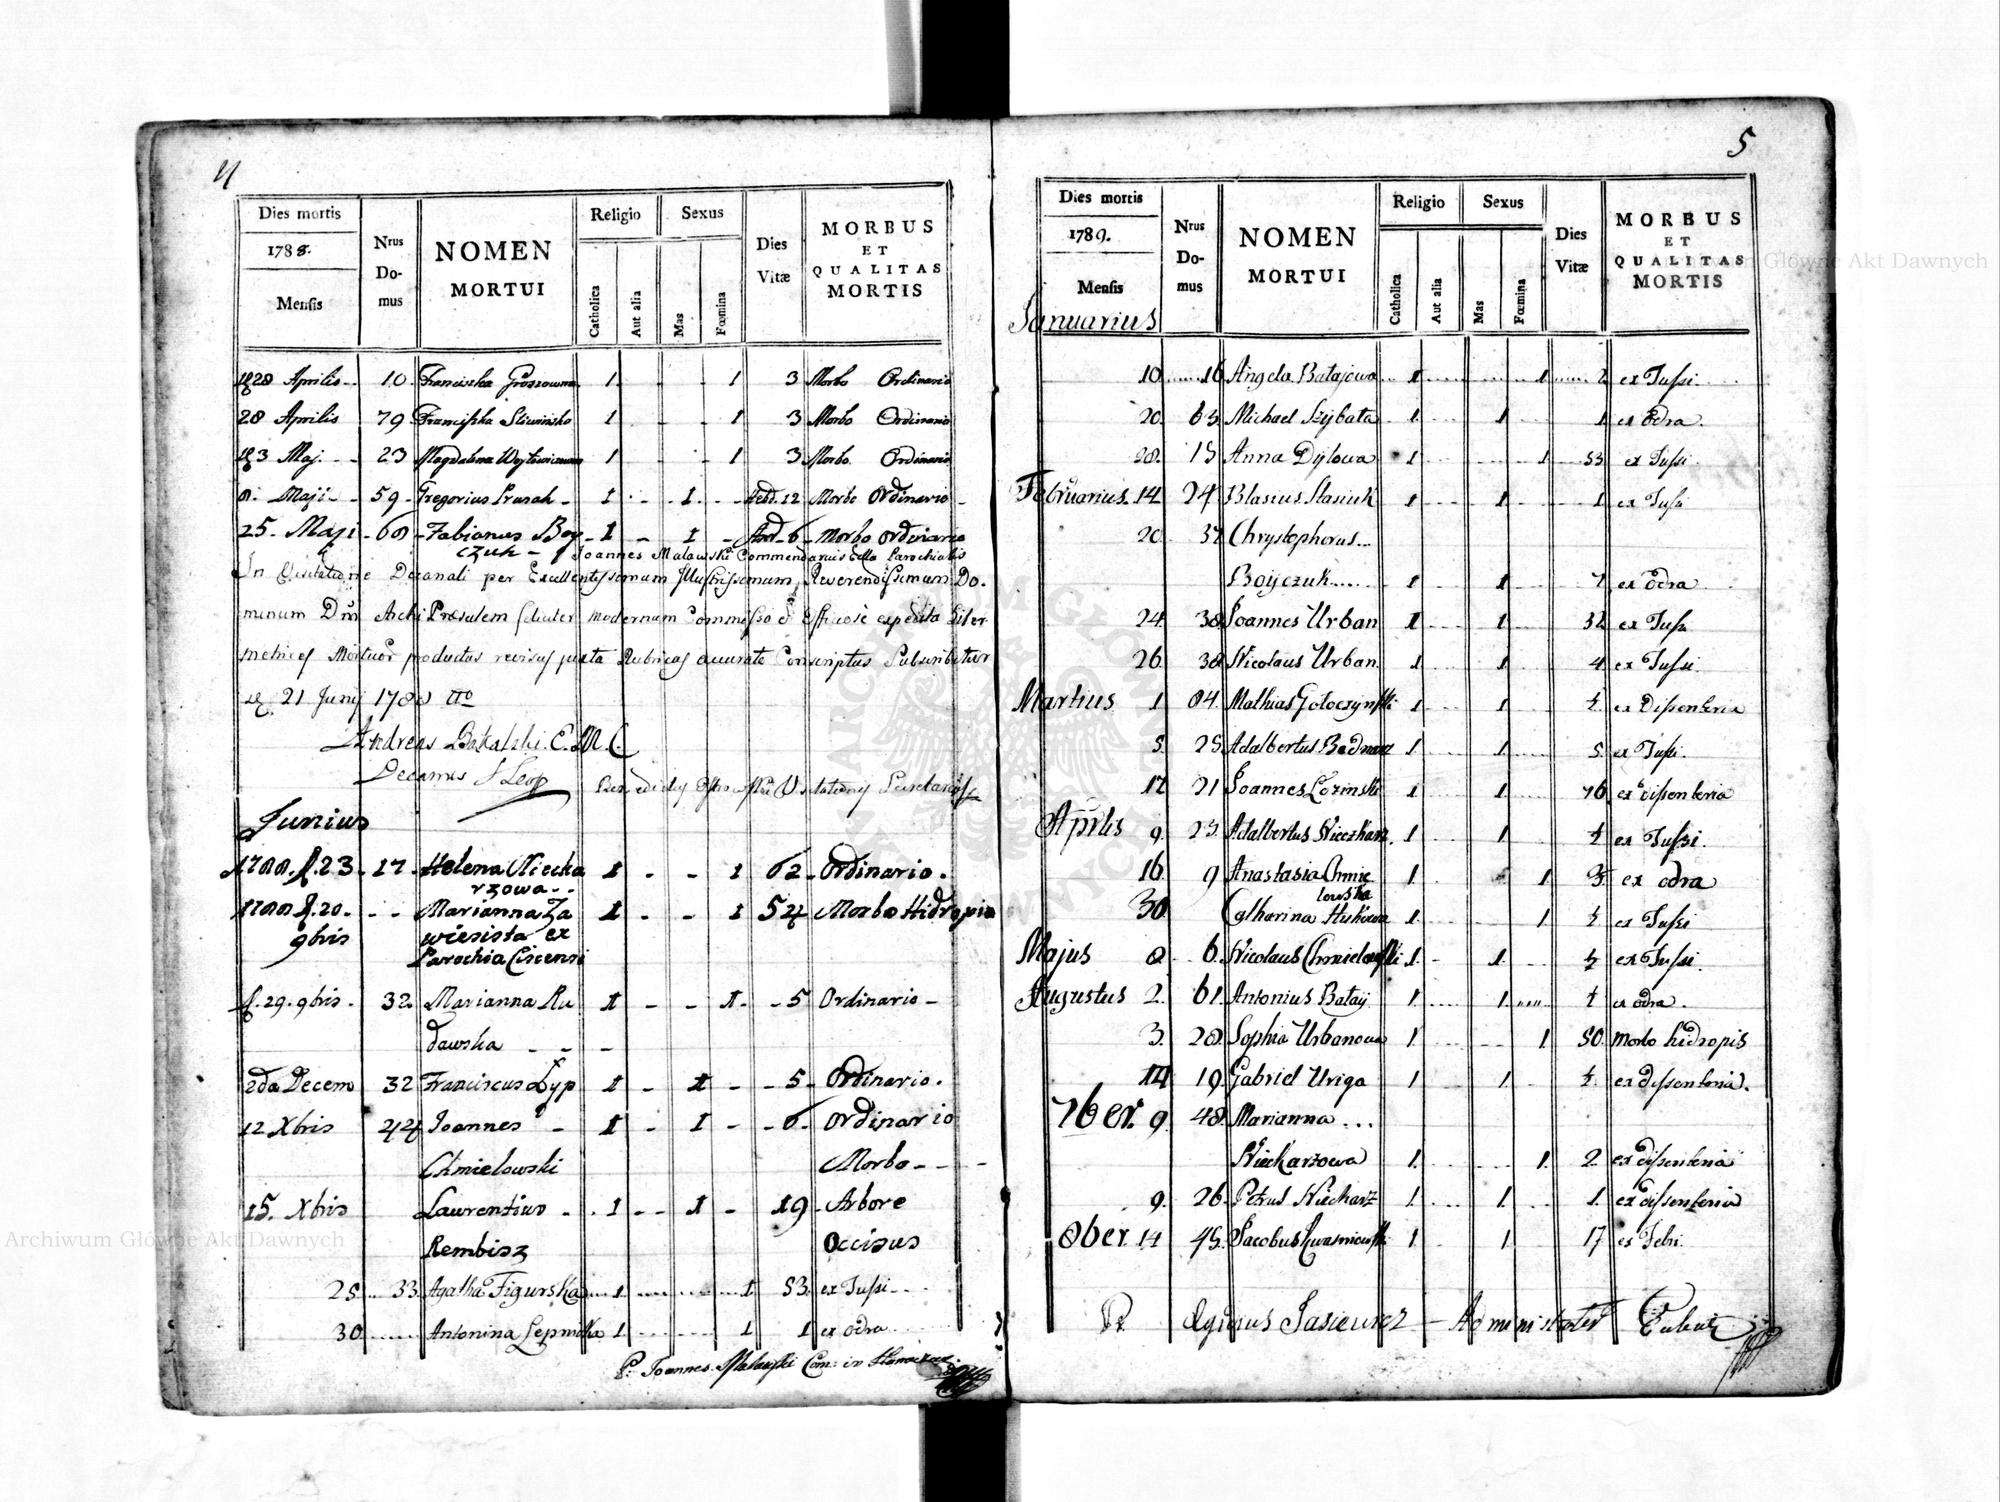 4
Dies mortis
1788.
Mensis
Nrus Do- mus
NOMEN MORTUI
Religio
Catholica
Aut alia
Sexus
Mas
Fœmina
Dies Vitæ
MORBUS ET QUALITAS MORTIS
28 Aprilis 10 Franciszka 1 1 3 Morbo Ordinario
28 Aprilis 79 Franciszka Sliwinska 1 1 3 Morbo Ordinario
3 Maj. 23 Magdalena 1 1 3 Morbo Ordinario
8. Maji 59 Gregorius Prusak 1 1 Hebd. 12 Morbo Ordinario
25. Maji 68 Fabianus Boy 1 1 6 Morbo Ordinario
czuk Joannes Malawski Commendarius Parochialis
In Visitatione Decanali per Excellentissimum Illustrissimum Reverendissimum Do.
minum Archi Præsulem modernum expedita liber
metrices productus juxta Rubricas accurate Conscriptus Subscribitur
21 Junij 1788
Andreas
Decanus
Junius
1788. f. 23. 17. Helena Niecka 1 1 62 Ordinario.
rzowa
1788 f. 20. Marianna Za 1 1 54 Morbo Hidropia
9bris wiesista ex
Parochia
f. 29. 9bris. 32. Marianna Ru 1 1 5 Ordinario
dawska
2da Decem 32 Franciscus Lyp 1 1 5 Ordinario.
12 Xbris 44 Joannes 1 1 6 Ordinario
Chmielowski Morbo
15. Xbris Laurentius 1 1 19 Arbore
Rembisz Occisus
25 33 Agatha Figurska 1 1 53 ex Tussi
30 Antonina 1 1 1 ex odra
P. Joannes Malawski Com: in
5
Dies mortis
1789.
Mensis
Nrus Do- mus
NOMEN MORTUI
Religio
Catholica
Aut alia
Sexus
Mas
Fœmina
Dies Vitæ
MORBUS ET QUALITAS MORTIS
Januarius
10 16 Angela Batajowa 1 1 2 ex Tussi
20 63 Michael Szybata 1 1 1 ex odra.
28. 15 Anna Dylowa 1 1 53 ex Tussi
Februarius. 14 24 Blasius Stasiuk 1 1 1 ex Tussi
20 37 Chrystophorus
Boyczuk 1 1 7 ex odra
24 38 Joannes Urban 1 1 32 ex Tussi
26 38 Nicolaus Urban 1 1 4 ex Tussi
Martius 1 84 Mathias 1 1 ½ ex Dissenteria
5 25 Adalbertus Bednarz 1 1 5 ex Tussi.
12 21 Joannes Lozinski 1 1 76 ex dissenteria
Aprilis 9 25 Adalbertus Nieckarz. 1 1 ½ ex Tussi.
16 9 Anastasia Chmie 1 1 3 ex odra
lowska
30 Catharina 1 1 ½ ex Tussi
Majus 8 6. Nicolaus Chmielowski 1 1 ½ ex Tussi
Augustus 2. 61. Antonius Bataij 1 1 ½ ex odra.
3. 28. Sophia Urbanowa 1 1 50 Morbo hidropis
14 19. Gabriel Uriga 1 1 ½ ex dissenteria.
7ber. 9. 48. Marianna ...
Nieckarzowa 1 1 2. ex dissenteria
9. 26. Petrus Nieckarz 1 1 1. ex dissenteria
8ber 14 45. Jacobus Kwasniewski 1 1 17 ex Febri.
Jasiewicz Administrator
Archiwum Główne Akt Dawnych
Archiwum Główne Akt Dawnych
ARCHIWUM GŁÓWNE AKT DAWNYCH